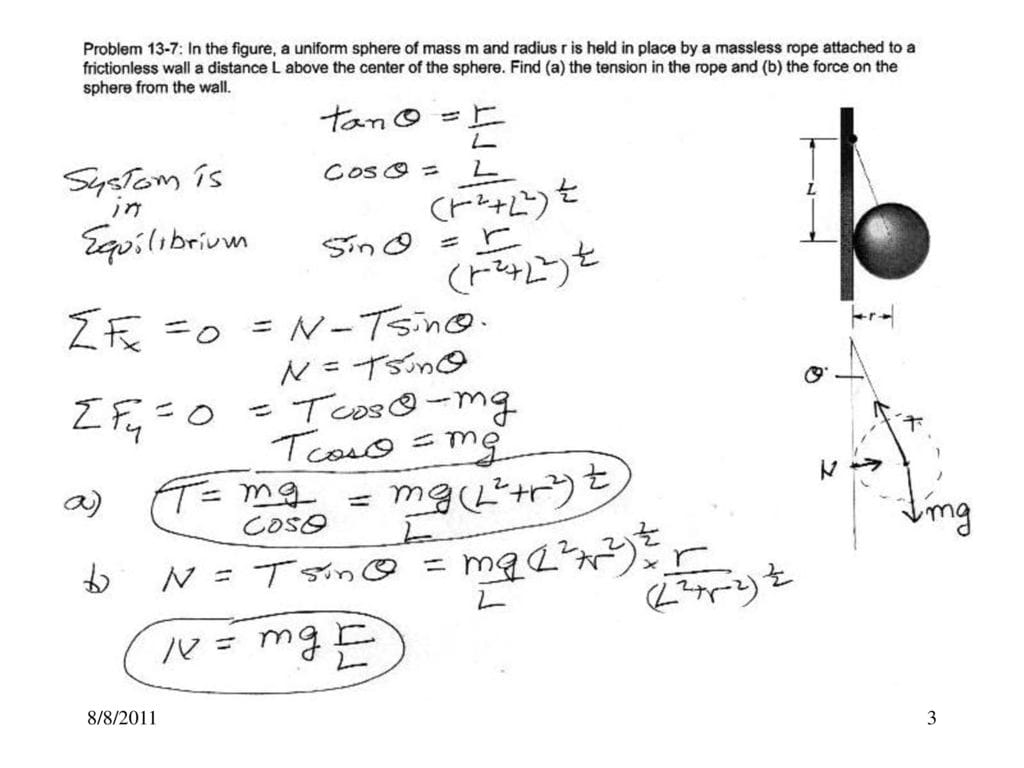 Problem 13-7: In the figure, a uniform sphere of mass m and radius r is held in place by a massless rope attached to a
frictionless wall a distance L above the center of the sphere. Find (a) the tension in the rope and (b) the force on the
sphere from the wall.
tan θ = r/L
System is
in
Equilibrium
cos θ = L/(r²+L²)^½
sin θ = r/(r²+L²)^½
ΣFx = 0 = N - T sin θ.
N = T sin θ
ΣFy = 0 = T cos θ - mg
T cos θ = mg
a) T = mg/cos θ = mg/L (L²+r²)^½
b N = T sin θ = mg/L (L²+r²)^½ × r/(L²+r²)^½
N = mg r/L
L
r
θ
T
N
mg
8/8/2011
3